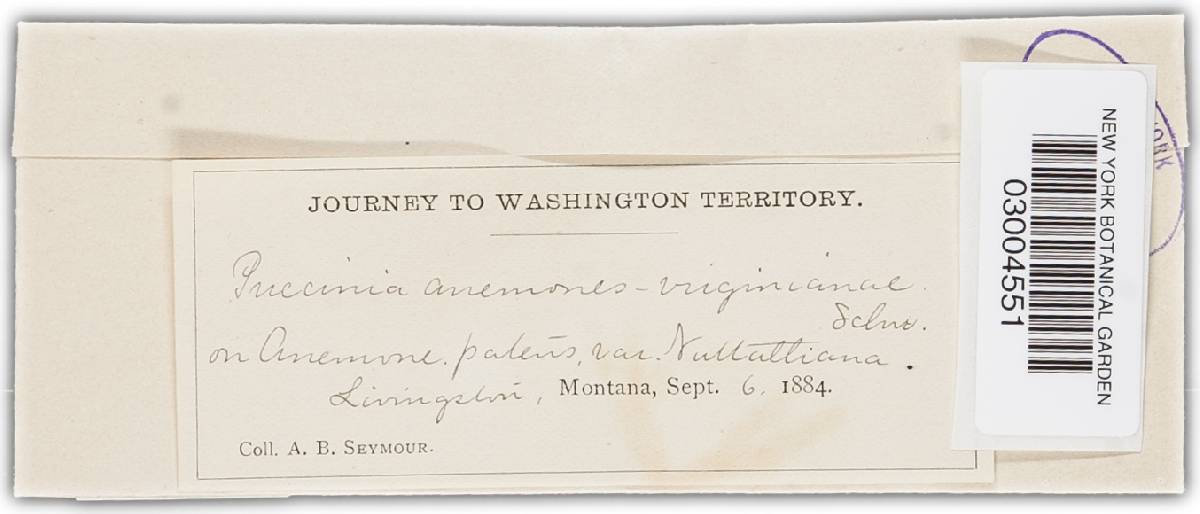 JOURNEY TO WASHINGTON TERRITORY.
Puccinia anemones-virginianae.
Schw.
on Anemone. patens, var. Nuttalliana.
Livingston, Montana, Sept. 6, 1884.
Coll. A. B. SEYMOUR.
NEW YORK BOTANICAL GARDEN
03004551
YORK